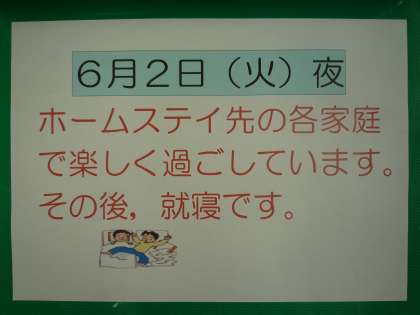 ６月２日（火）夜
ホームステイ先の各家庭
で楽しく過ごしています。
その後，就寝です。